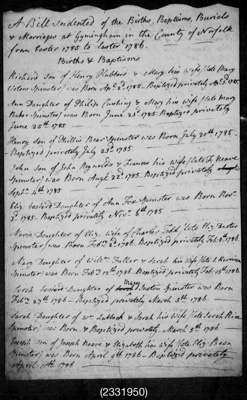 A Bill Indented of the Births, Baptisms, Burials
& Marriages at Gymingham in the County of Norfolk
from Easter 1785 to Easter 1786.
Births & Baptisms
Richard Son of Henry & Mary his Wife, late Mary
Spinster was Born Ap: 1785. Baptized privately 1785
Ann Daughter of Philip Cushing & Mary his Wife late Mary
Baker Spinster was Born June 23d 1785. Baptized privately
June 25th 1785
Henry Son of Phillis Bear Spinster was Born July 20th 1785.
Baptized privately July 23d 1785
John Son of John Reynolds & Frances his Wife late Fr. Neave
Spinster was Born Augt. 22d. 1785. Baptized privately
Septr. 4th 1785
Eliz: bastard Daughter of Ann Fox Spinster was Born Novr.
3d. 1785. Baptized privately Novr. 6th 1785
Daughter of Eliz. Wife of Charles late Eliz.
Spinster, was Born Feb: 1786. Baptized privately Feb: 1786.
Mary Daughter of Willm. Fuller & Sarah his Wife late
Spinster was Born Feb: 12th 1786. Baptized privately Feb: 15th 1786.
Sarah bastard Daughter of Mary Spinster was Born
Feb: 27th 1786 - Baptized privately March 5th 1786.
Sarah Daughter of Wm. Lubbock & Sarah his Wife late Sarah Rice
Spinster was Born & Baptized privately. March 5th 1786
Joseph Son of Joseph Neave & Elizabeth his Wife late Eliz:
Spinster was Born April 9th 1786. Baptized privately
April 1786
(2331950)